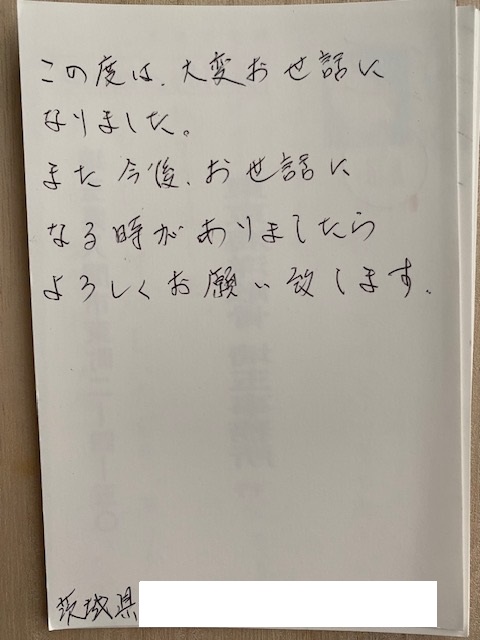 この度は、大変お世話に
なりました。
また今後、お世話に
なる時がありましたら
よろしくお願い致します。
茨城県